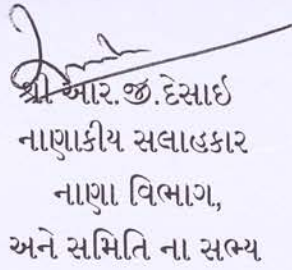 શ્રી આર.જી.દેસાઇ
નાણાકીય સલાહકાર
નાણા વિભાગ,
અને સમિતિ ના સભ્ય